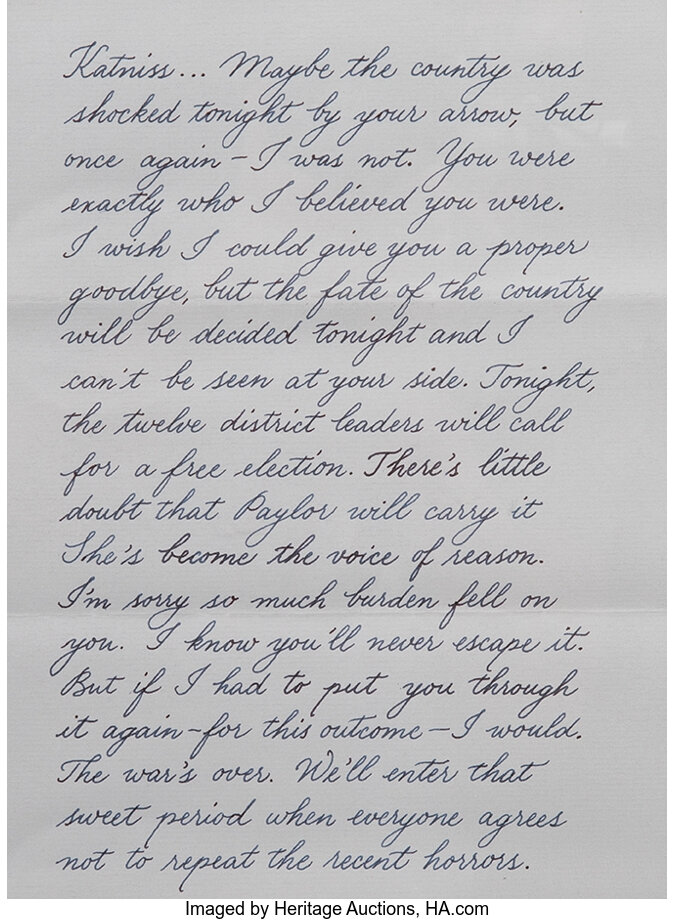 Katniss... Maybe the country was
shocked tonight by your arrow, but
once again – I was not. You were
exactly who I believed you were.
I wish I could give you a proper
goodbye, but the fate of the country
will be decided tonight and I
can't be seen at your side. Tonight,
the twelve district leaders will call
for a free election. There's little
doubt that Paylor will carry it
She's become the voice of reason.
I'm sorry so much burden fell on
you. I know you'll never escape it.
But if I had to put you through
it again – for this outcome – I would.
The war's over. We'll enter that
sweet period when everyone agrees
not to repeat the recent horrors.
Imaged by Heritage Auctions, HA.com